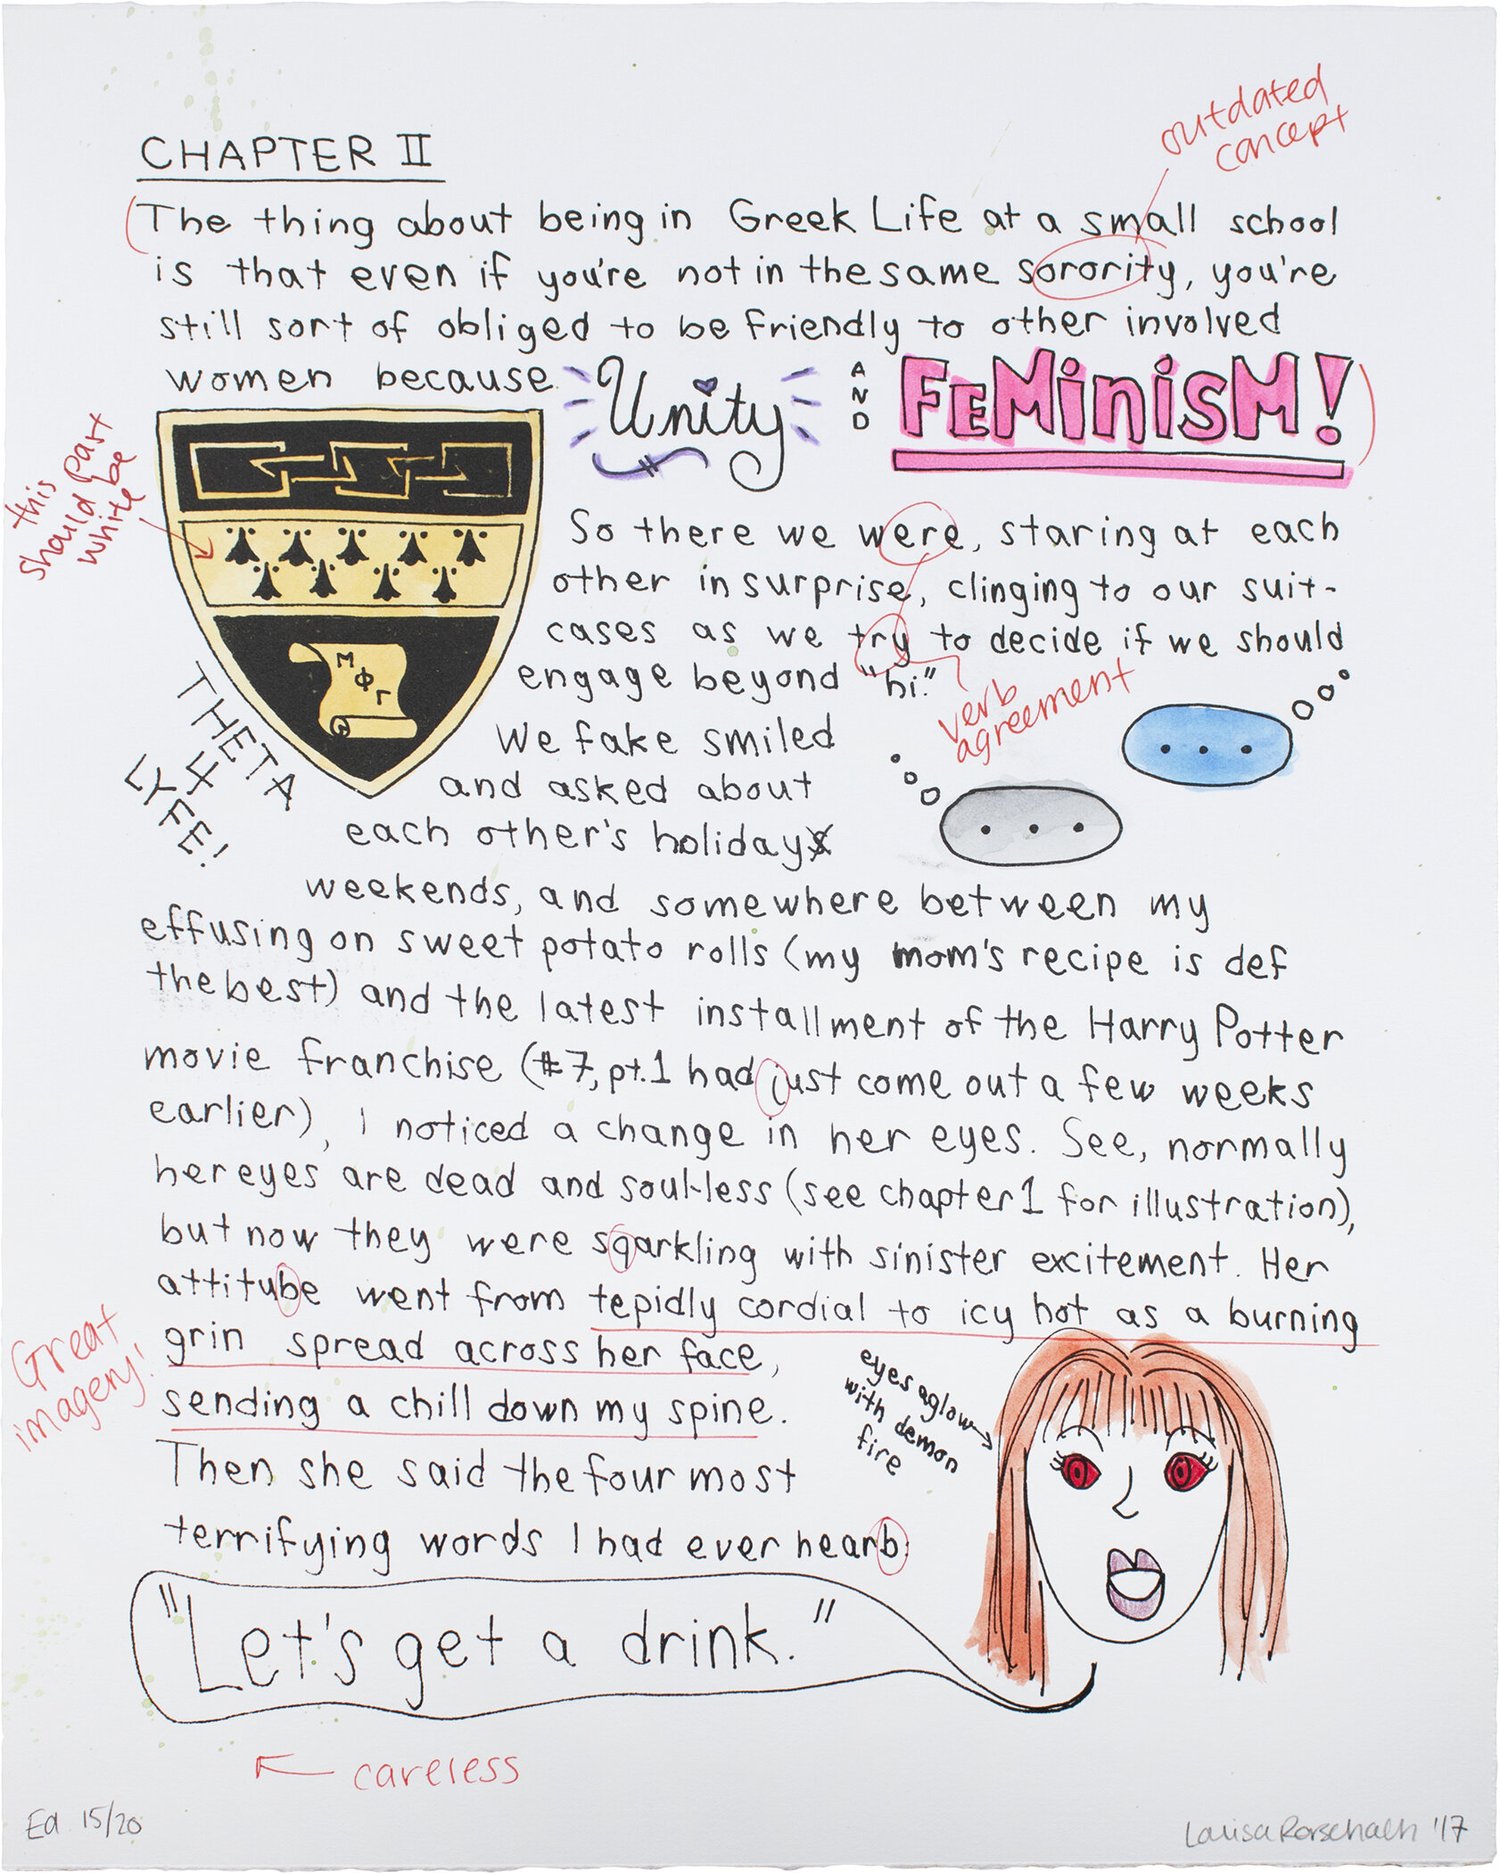 outdated
concept
CHAPTER II
The thing about being in Greek Life at a small school
is that even if you're not in the same sorority, you're
still sort of obliged to be friendly to other involved
women because Unity AND FEMINISM!
this
should part
white be
So there we were, staring at each
other in surprise, clinging to our suit-
cases as we try to decide if we should
engage beyond "hi."
verb
agreement
M
Φ
Γ
THETA
4
LYFE!
We fake smiled
and asked about
each other's holiday
weekends, and somewhere between my
effusing on sweet potato rolls (my mom's recipe is def
the best) and the latest installment of the Harry Potter
movie franchise (#7, pt. 1 had just come out a few weeks
earlier), I noticed a change in her eyes. See, normally
her eyes are dead and soul-less (see chapter 1 for illustration),
but now they were sqarkling with sinister excitement. Her
attitube went from tepidly cordial to icy hot as a burning
grin spread across her face,
sending a chill down my spine.
Great
imagery!
eyes aglow
with demon
fire
Then she said the four most
terrifying words I had ever hearb:
"Let's get a drink."
careless
Ed 15/20
Larisa Rorschach '17